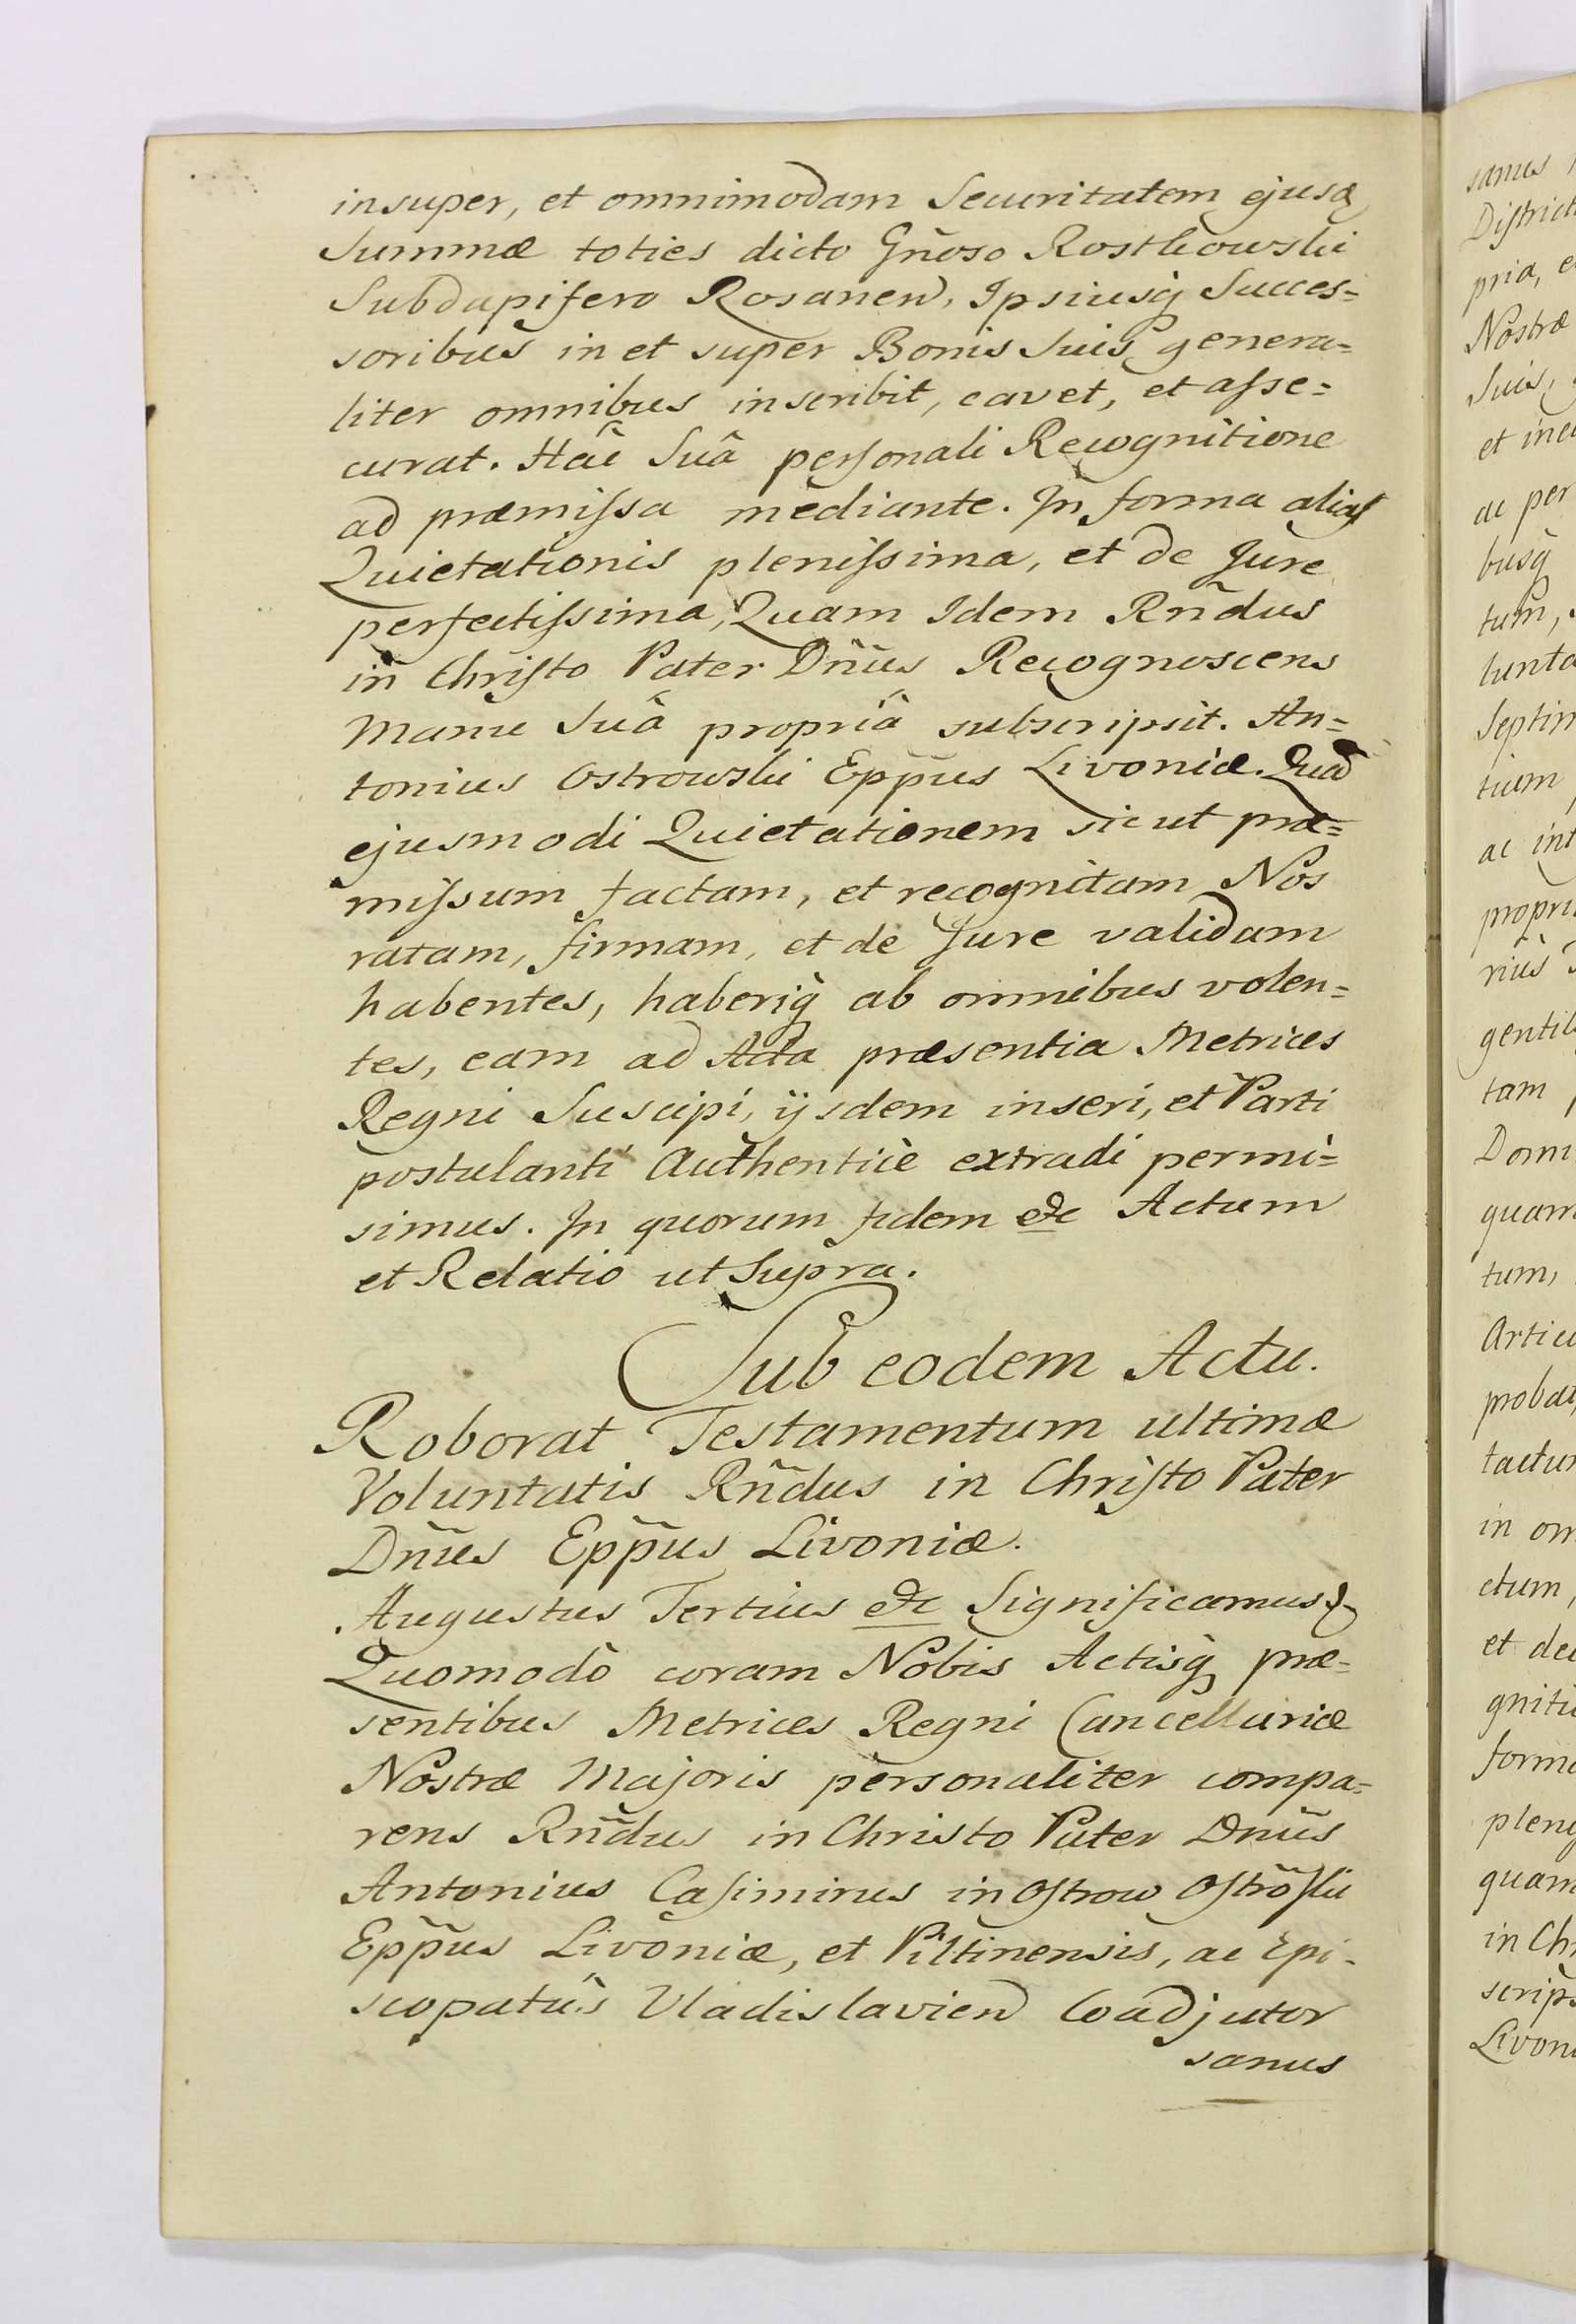 insuper, et omnimodam Securitatem ejusq
Summæ toties dicto Gñoso Rostkowski
Subdapifero Rosanen, Ipsiusq Succes=
soribus in et super Bonis Suis genera=
liter omnibus inscribit, cavet, et asse=
curat. Hac Suâ personali Recognitione
ad præmissa mediante. In forma alias
Quietationis plenissima, et de Jure
perfectissima, Quam Idem Rñdus
in Christo Pater Dñus Recognoscens
Manu Suâ propriâ subscripsit. An=
tonius Ostrowski Eppus Livoniæ. Quã
ejusmodi Quietationem sicut præ=
missum factam, et recognitam Nos
ratam, firmam, et de Jure validam
habentes, haberiq ab omnibus volen=
tes, eam ad Acta præsentia Metrices
Regni Suscipi, ijsdem inseri, et Parti
postulanti Authenticè extradi permi=
simus. In quorum fidem &c Actum
et Relatio ut Supra.
Sub eodem Actu.
Roborat Testamentum ultimæ
Voluntatis Rñdus in Christo Pater
Dñus Eppus Livoniæ.
Augustus Tertius &c Significamus &
Quomodò coram Nobis Actisq præ=
sentibus Metrices Regni Cancellariæ
Nostræ Majoris personaliter compa=
rens Rñdus in Christo Pater Dñus
Antonius Casimirus in Ostrow Ostrõski
Eppus Livoniæ, et Piltinensis, ac Epi-
scopatûs Vladislavien Coadjutor
sanus
sanus
District
pria, e
Nostræ
Suis,
et ine
ac per
busq
tum,
lunta
Septim
tium
ac int
propri
rius
gentil
tam
Domi
quam
tum,
Articu
probat
tactu
in om
ctum,
et de
gniti
forma
plen
quam
in Ch
scrips
Livon